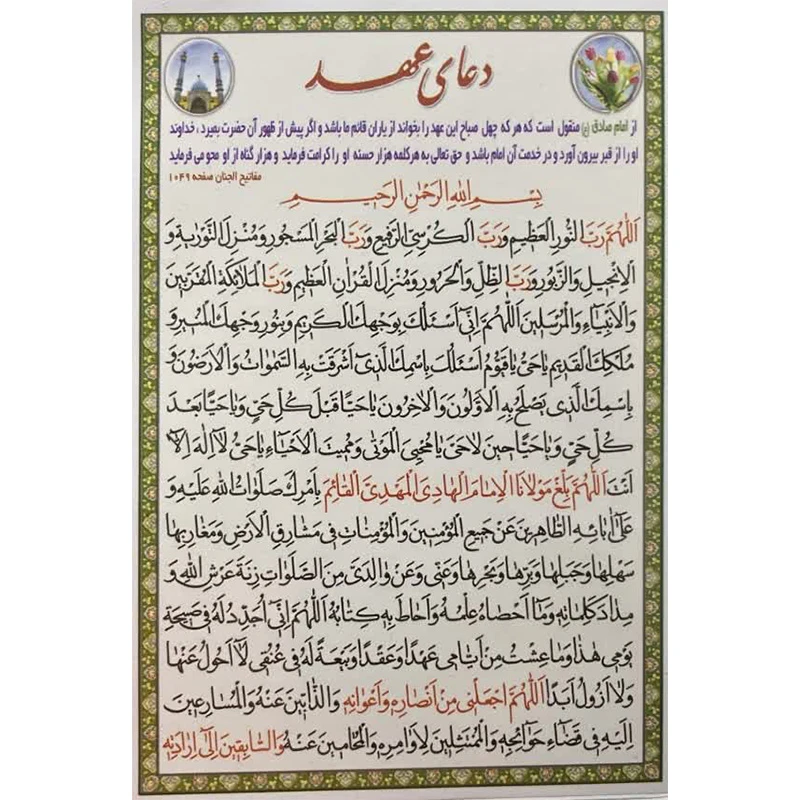 دعای عهد
از امام صادق (ع) منقول است که هر که چهل صباح این عهد را بخواند از یاران قائم ما باشد و اگر پیش از ظهور آن حضرت بمیرد ، خداوند
او را از قبر بیرون آورد و در خدمت آن امام باشد و حق تعالی به هر کلمه هزار حسنه او را کرامت فرماید و هزار گناه از او محو می فرماید
مفاتیح الجنان صفحه ۱۰۴۹
بِسْمِ اللهِ الرَّحْمٰنِ الرَّحیمِ
اَللّٰهُمَّ رَبَّ النُّورِ الْعَظیمِ وَ رَبَّ الْکُرْسِیِّ الرَّفیعِ وَ رَبَّ الْبَحْرِ الْمَسْجُورِ وَ مُنْزِلَ التَّوْرٰیةِ وَ
الْاِنْجیلِ وَ الزَّبُورِ وَ رَبَّ الظِّلِّ وَ الْحَرُورِ وَ مُنْزِلَ الْقُرْاٰنِ الْعَظیمِ وَ رَبَّ الْمَلٰائِکَةِ الْمُقَرَّبینَ
وَ الْاَنْبِیٰاءِ وَ الْمُرْسَلینَ اَللّٰهُمَّ اِنّی اَسْئَلُکَ بِوَجْهِکَ الْکَریمِ وَ بِنُورِ وَجْهِکَ الْمُنیرِ وَ
مُلْکِکَ الْقَدیمِ یٰا حَیُّ یٰا قَیُّومُ اَسْئَلُکَ بِاسْمِکَ الَّذی اَشْرَقَتْ بِهِ السَّمٰوٰاتُ وَ الْاَرَضُونَ وَ
بِاسْمِکَ الَّذی یَصْلَحُ بِهِ الْاَوَّلُونَ وَ الْاٰخِرُونَ یٰا حَیّاً قَبْلَ کُلِّ حَیٍّ وَ یٰا حَیّاً بَعْدَ
کُلِّ حَیٍّ وَ یٰا حَیّاً حینَ لٰا حَیَّ یٰا مُحْیِیَ الْمَوْتیٰ وَ مُمیتَ الْاَحْیٰاءِ یٰا حَیُّ لٰا اِلٰهَ اِلّٰا
اَنْتَ اَللّٰهُمَّ بَلِّغْ مَوْلٰانَا الْاِمٰامَ الْهٰادِیَ الْمَهْدِیَّ الْقٰائِمَ بِاَمْرِکَ صَلَوٰاتُ اللهِ عَلَیْهِ وَ
عَلیٰ اٰبٰائِهِ الطّٰاهِرینَ عَنْ جَمیعِ الْمُؤْمِنینَ وَ الْمُؤْمِنٰاتِ فی مَشٰارِقِ الْاَرْضِ وَ مَغٰارِبِهٰا
سَهْلِهٰا وَ جَبَلِهٰا وَ بَرِّهٰا وَ بَحْرِهٰا وَ عَنّی وَ عَنْ وٰالِدَیَّ مِنَ الصَّلَوٰاتِ زِنَةَ عَرْشِ اللهِ وَ
مِدٰادَ کَلِمٰاتِهِ وَ مٰا اَحْصٰاهُ عِلْمُهُ وَ اَحٰاطَ بِهِ کِتٰابُهُ اَللّٰهُمَّ اِنّی اُجَدِّدُ لَهُ فی صَبیحَةِ
یَوْمی هٰذٰا وَ مٰا عِشْتُ مِنْ اَیّٰامی عَهْداً وَ عَقْداً وَ بَیْعَةً لَهُ فی عُنُقی لٰا اَحُولُ عَنْهٰا
وَ لٰا اَزُولُ اَبَداً اَللّٰهُمَّ اجْعَلْنی مِنْ اَنْصٰارِهِ وَ اَعْوٰانِهِ وَ الذّٰابّینَ عَنْهُ وَ الْمُسٰارِعینَ
اِلَیْهِ فی قَضٰاءِ حَوٰائِجِهِ وَ الْمُمْتَثِلینَ لِاَوٰامِرِهِ وَ الْمُحٰامینَ عَنْهُ وَ السّٰابِقینَ اِلیٰ اِرٰادَتِهِ